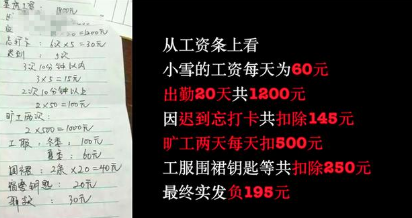 1800元
=1200元
忘打卡: 6次×5=30元
迟到: 5次
3次10分钟以内
3×5=15元
2次10分钟以上
2×50=100元
旷工两次:
2×500=1000元
工服: 冬季: 100元
夏季: 60元
围裙: 2条×20=40元
宿舍钥匙: 20元
30元
从工资条上看
小雪的工资每天为60元
出勤20天共1200元
因迟到忘打卡共扣除145元
旷工两天每天扣500元
工服围裙钥匙等共扣除250元
最终实发负195元